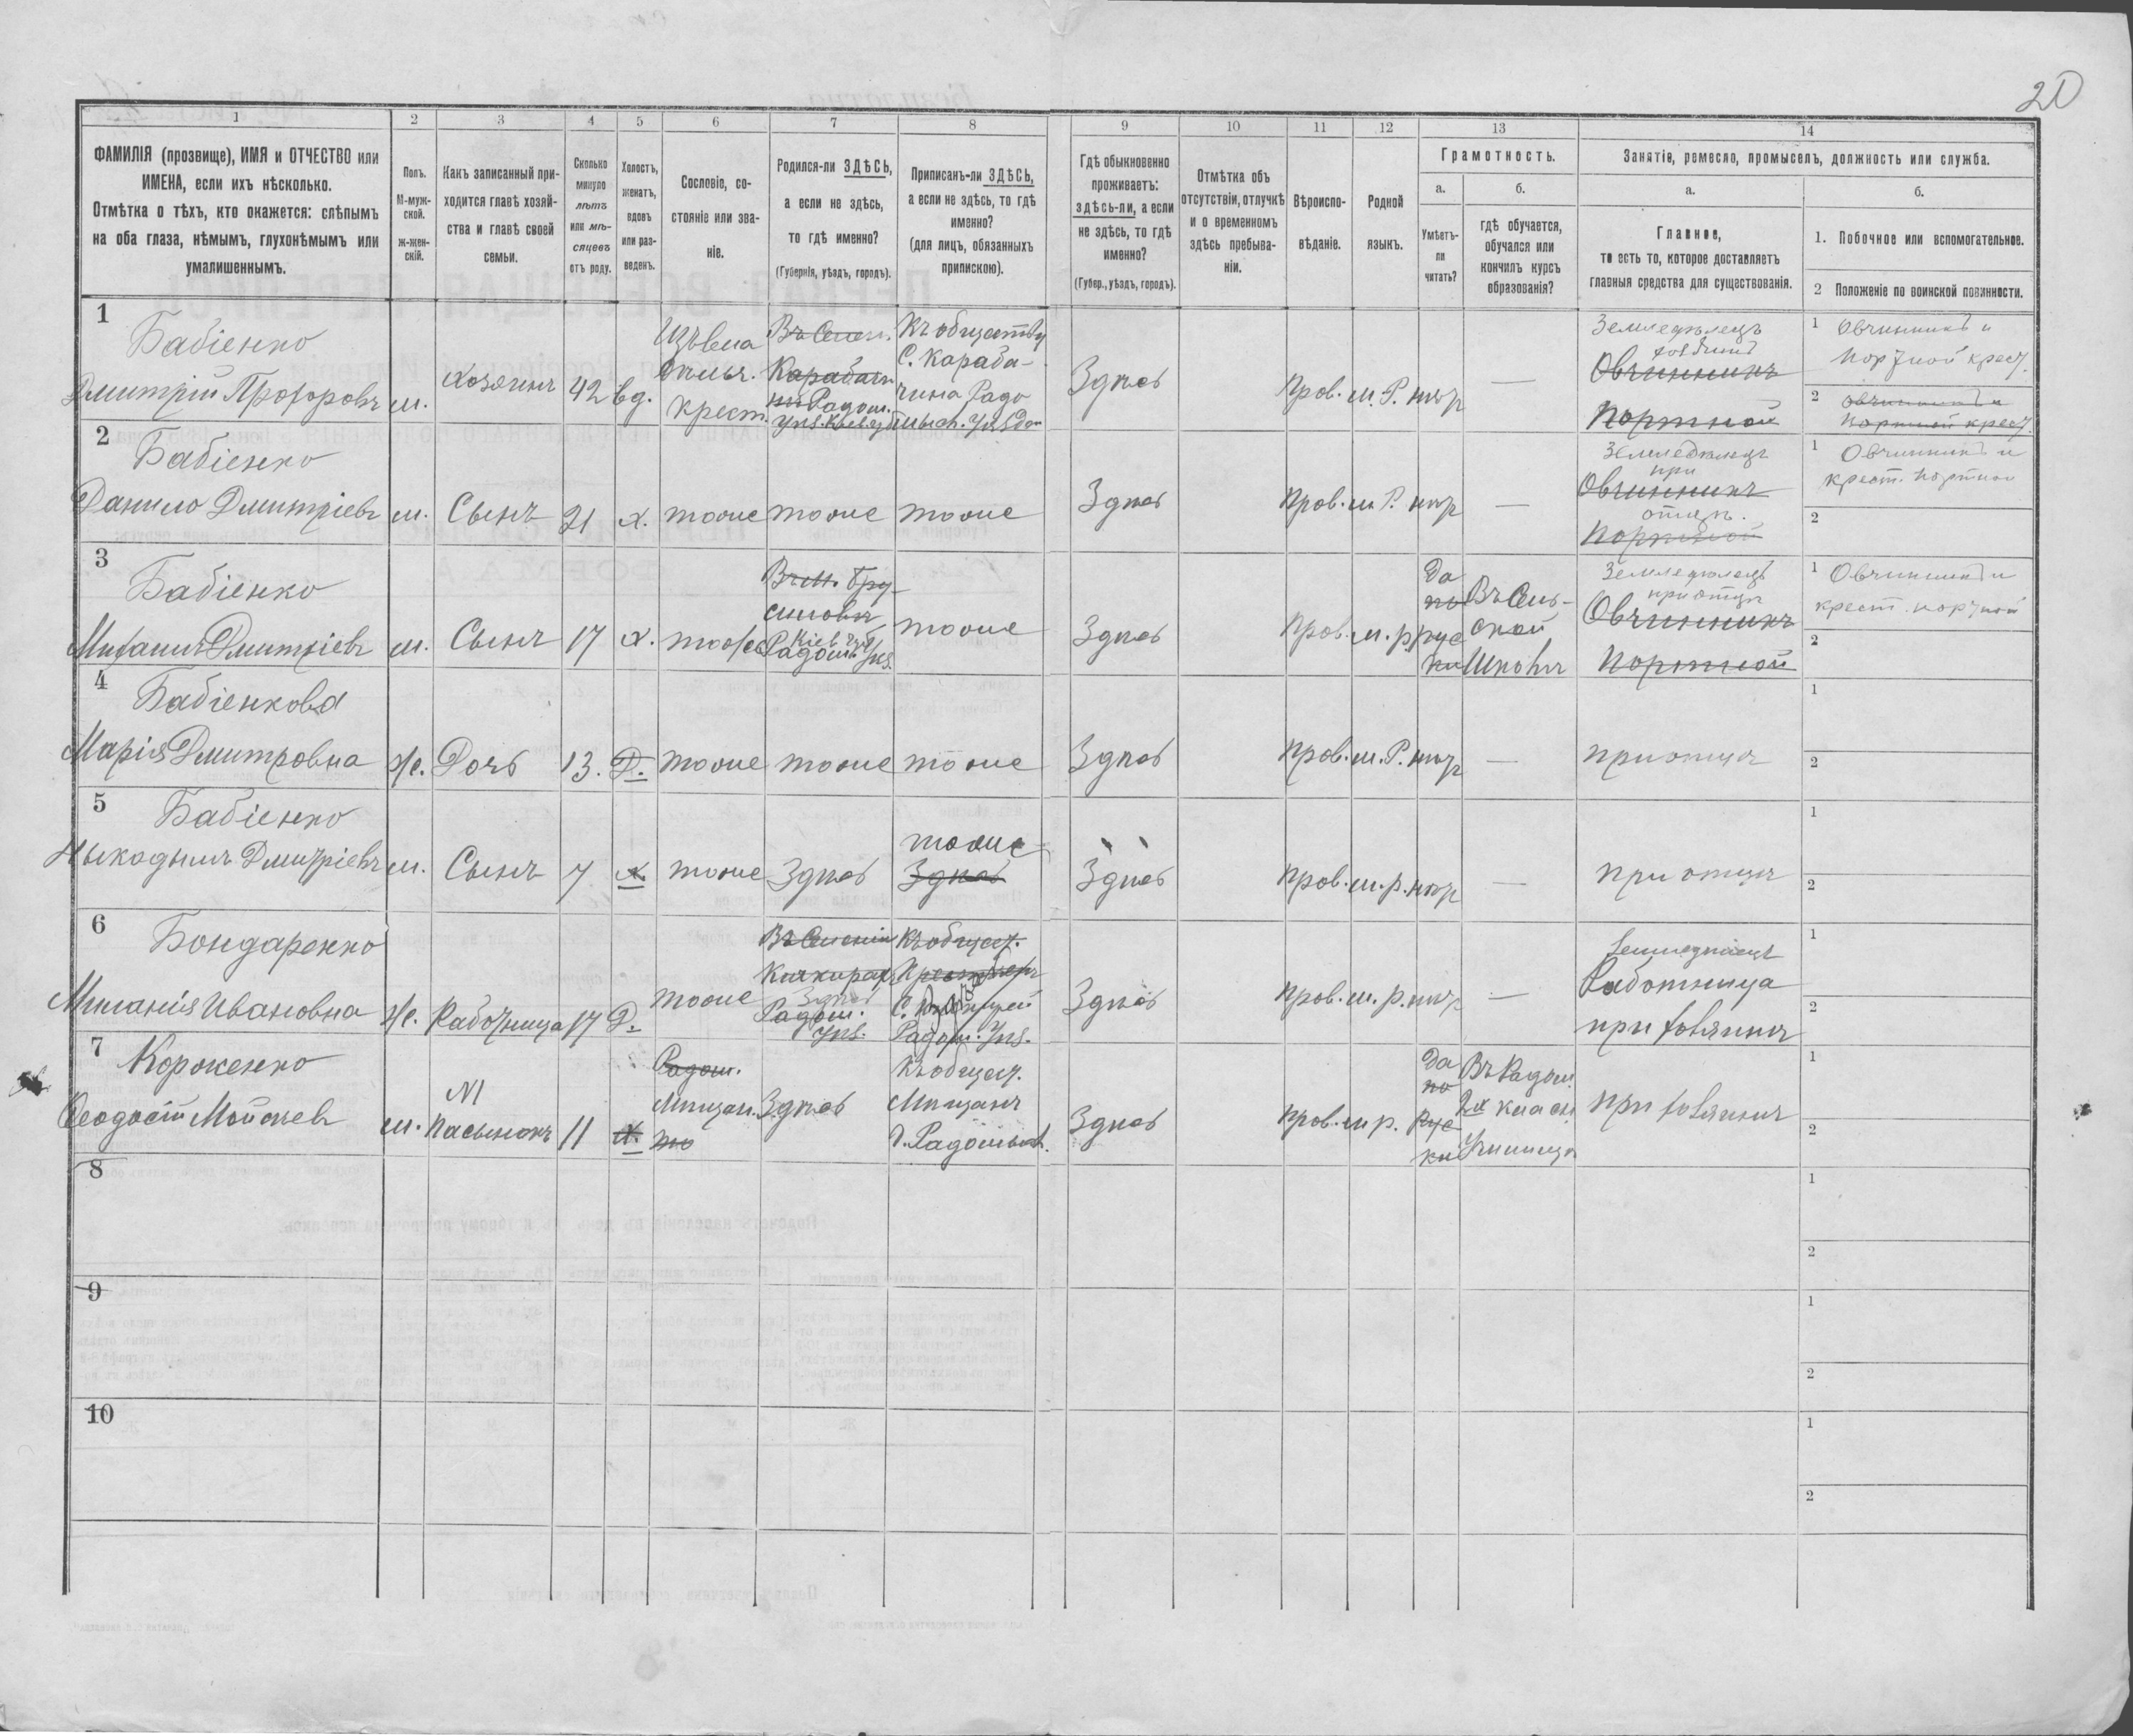 20
1 2 3 4 5 6 7 8 9 10 11 12 13 14
ФАМИЛІЯ (прозвище), ИМЯ и ОТЧЕСТВО или
ИМЕНА, если ихъ нѣсколько.
Отмѣтка о тѣхъ, кто окажется: слѣпымъ
на оба глаза, нѣмымъ, глухонѣмымъ или
умалишеннымъ.
Полъ.
М-муж-
ской.
ж-жен-
скій.
Какъ записанный при-
ходится главѣ хозяй-
ства и главѣ своей
семьи.
Сколько
минуло
лѣтъ
или мѣ-
сяцевъ
отъ роду.
Холостъ,
женатъ,
вдовъ
или раз-
веденъ.
Сословіе, со-
стояніе или зва-
ніе.
Родился-ли ЗДѢСЬ,
а если не здѣсь,
то гдѣ именно?
(Губернія, уѣздъ, городъ).
Приписанъ-ли ЗДѢСЬ,
а если не здѣсь, то гдѣ
именно?
(для лицъ, обязанныхъ
припискою).
Гдѣ обыкновенно
проживаетъ:
здѣсь-ли, а если
не здѣсь, то гдѣ
именно?
(Губер., уѣздъ, городъ).
Отмѣтка объ
отсутствіи, отлучкѣ
и о временномъ
здѣсь пребыва-
ніи.
Вѣроиспо-
вѣданіе.
Родной
языкъ.
Грамотность.
а.
Умѣетъ-
ли
читать?
б.
гдѣ обучается,
обучался или
кончилъ курсъ
образованія?
Занятіе, ремесло, промыселъ, должность или служба.
а.
Главное,
то есть то, которое доставляетъ
главныя средства для существованія.
б.
1. Побочное или вспомогательное.
2 Положеніе по воинской повинности.
1
Бабіенко
Дмитрій Прохоровъ
м.
хозяинъ
42
вд.
крест.
Въ Селен.
Радом.
Къ обществу
С. Караба-
чина Радо
Здѣсь
Прав.
м. Р.
нѣт
—
Земледѣлецъ
Овчинникъ
Портной
1 Овчинникъ и
Портной крест.
2 Овчинникъ и
Портной крест.
2
Бабіенко
Данило Дмитріевъ
м.
Сынъ
21
х.
тоже
тоже
тоже
Здѣсь
Прав.
м. Р.
нѣт
—
Земледѣлецъ
при
Овчинникъ
отцѣ.
Портной
1 Овчинникъ и
крест. Портной
2
3
Бабіенко
Михаилъ Дмитріевъ
м.
Сынъ
17
х.
тоже
Радом. Уѣз.
тоже
Здѣсь
Прав.
м. р.
Да
по
рус
ки
Въ Сель-
ской
Школѣ
Земледѣлецъ
при отцѣ
Овчинникъ
Портной
1 Овчинникъ и
крест. портной
2
4
Бабіенкова
Марія Дмитровна
Ж.
Дочь
13.
Д.
тоже
тоже
тоже
Здѣсь
Прав.
м. Р.
нѣт
—
при отцѣ
1
2
5
Бабіенко
Ныкодымъ Дмитріевъ
м.
Сынъ
7
х.
тоже
Здѣсь
тоже
Здѣсь
Здѣсь
Прав.
м. р.
нѣт
—
при отцѣ
1
2
6
Бондаренко
Миланія Ивановна
Ж.
Работница
17
Д.
тоже
Въ Селеніи
Здѣсь
Радом.
Уѣз.
Къ общест.
Радом. Уѣз.
Здѣсь
Прав.
м. р.
нѣт
—
Земледѣлецъ
Работница
при хозяинѣ
1
2
7
Короженко
Ѳеодосій Мойсеевъ
м.
N1
пасынокъ
11
х.
Радом.
Мѣщан.
Здѣсь
Къ общест.
Мѣщанъ
г. Радомысл.
Здѣсь
Прав.
м р.
Да
по
рус
ки
Въ Радом.
2х класн
Училищѣ
при хозяинѣ
1
2
8
1
2
9
1
2
10
1
2